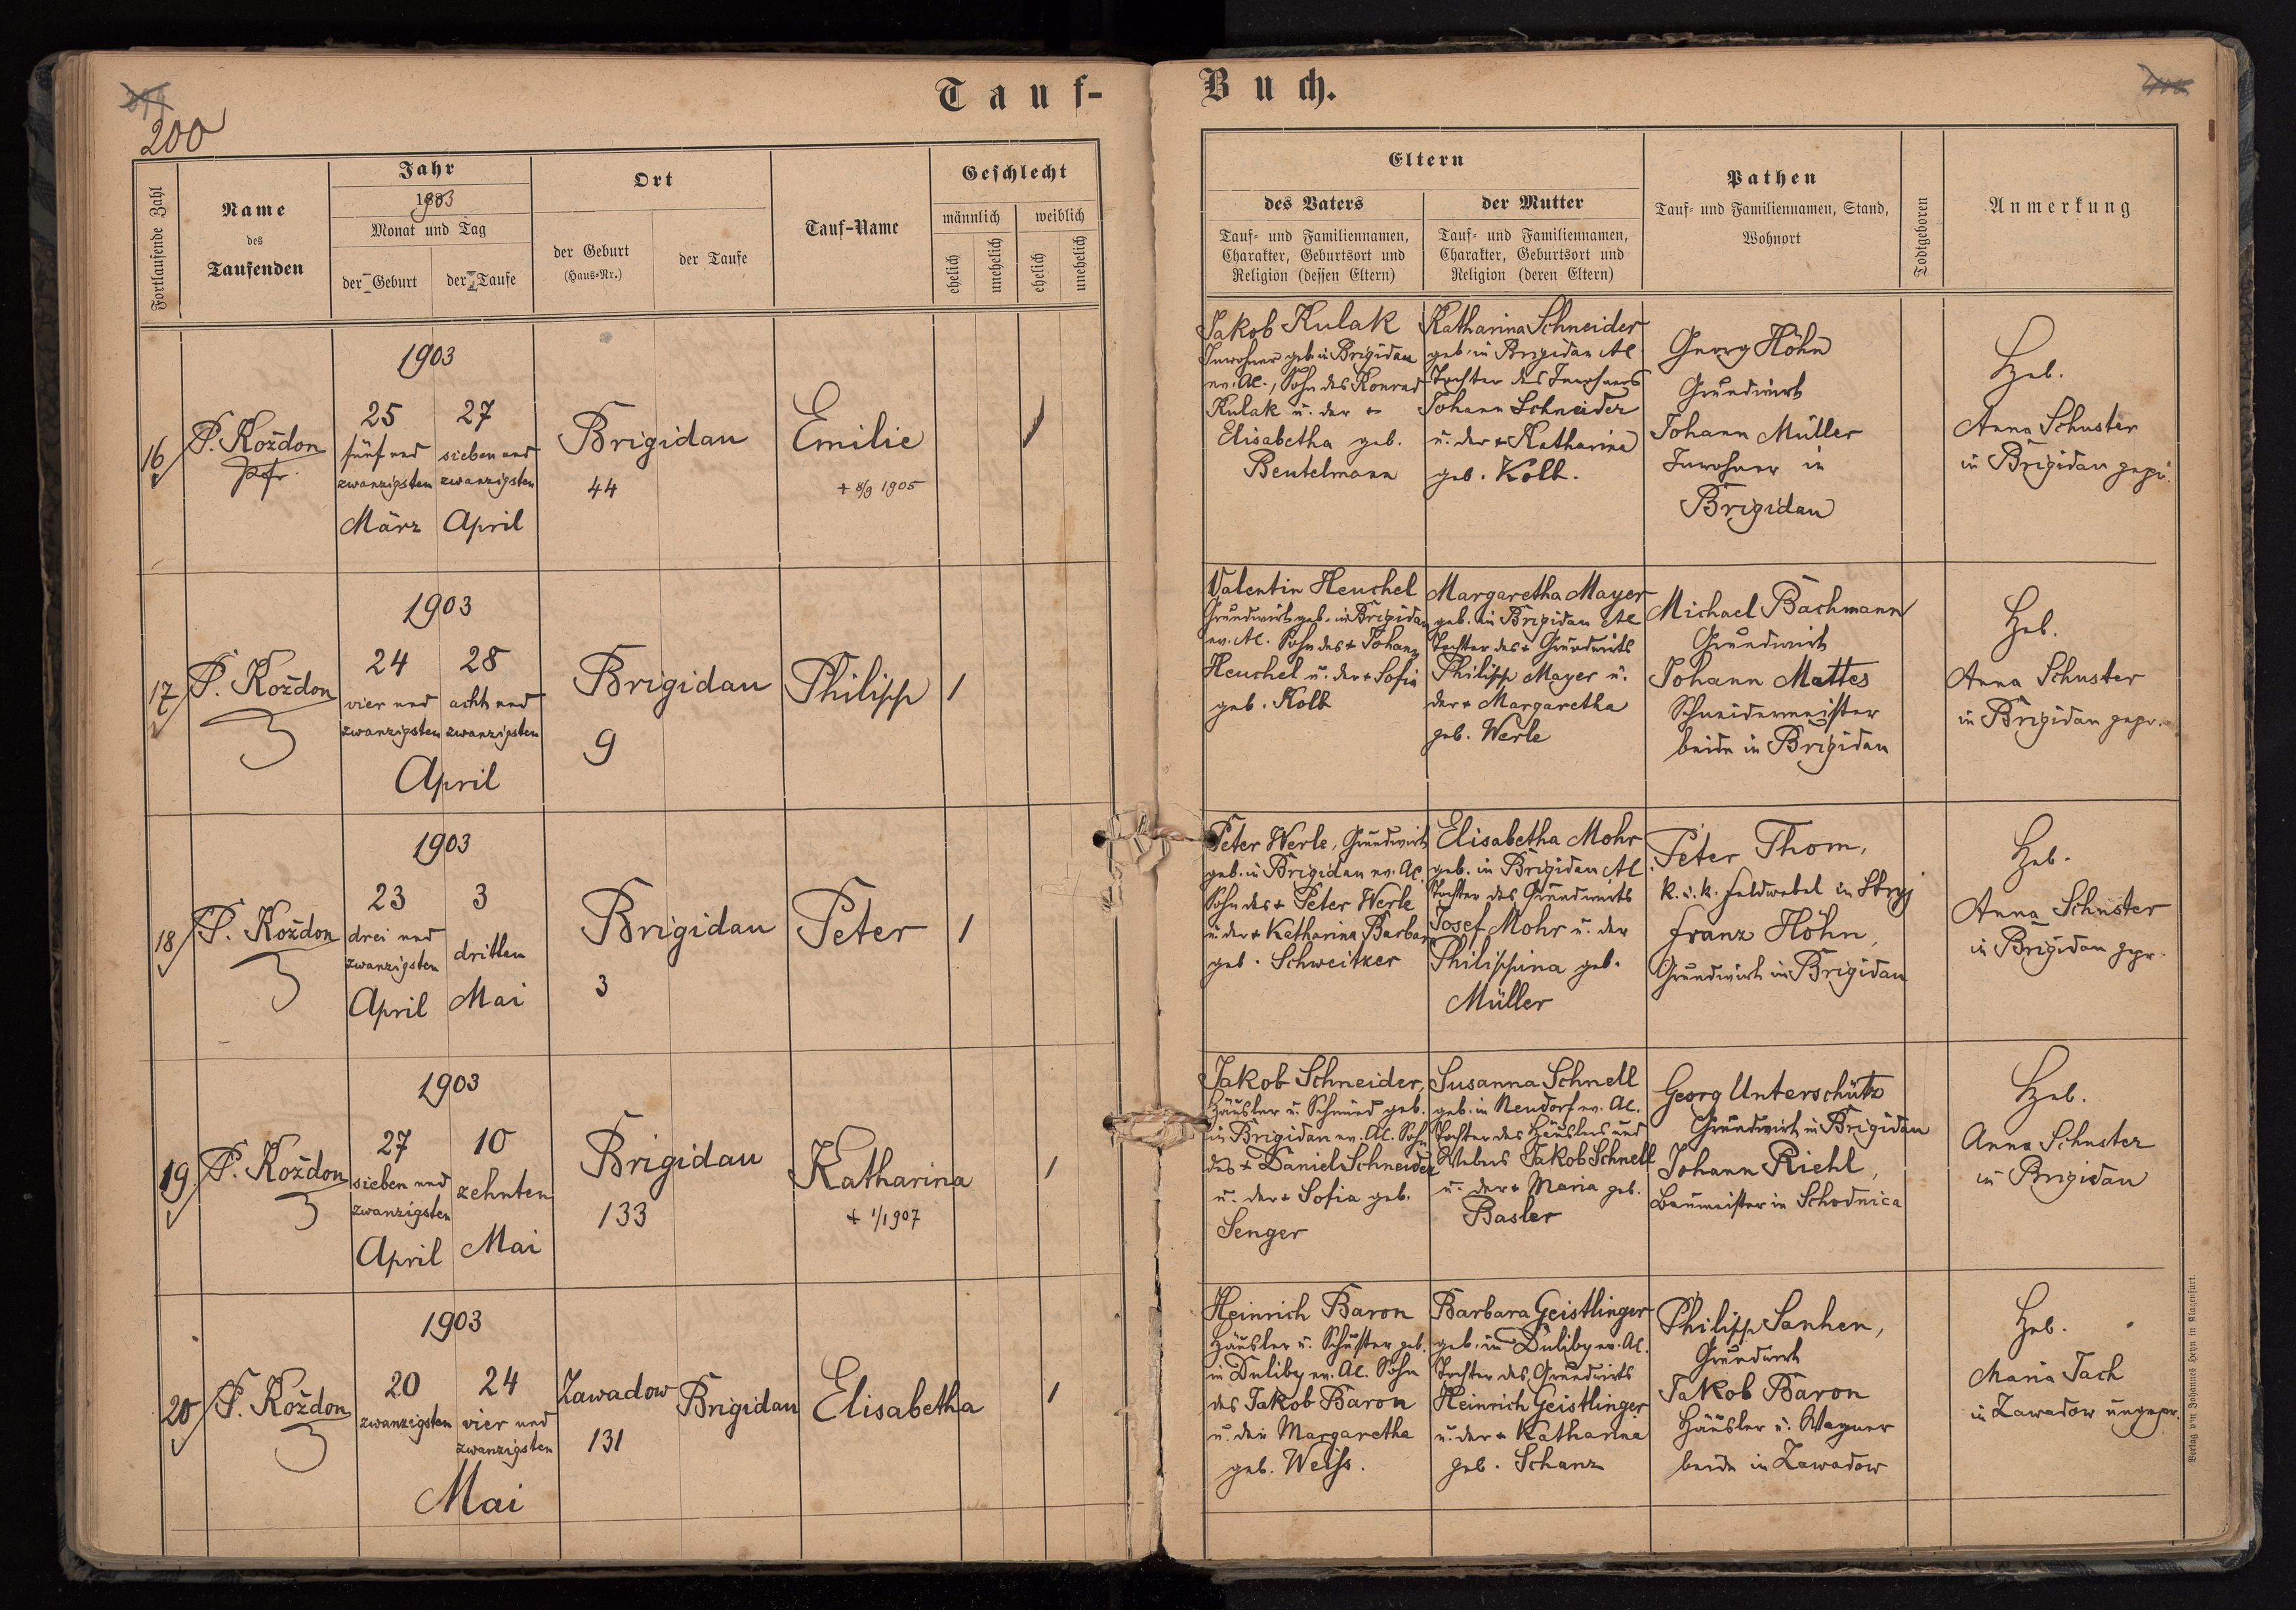 Tauf-
Buch.
200
Fortlaufende Zahl
Name
des
Taufenden
Jahr
1903
Monat und Tag
der Geburt
der Taufe
Ort
der Geburt
(Haus-Nr.)
der Taufe
Tauf-Name
Geschlecht
männlich
weiblich
ehelich
unehelich
ehelich
unehelich
Eltern
des Vaters
Tauf- und Familiennamen,
Charakter, Geburtsort und
Religion (dessen Eltern)
der Mutter
Tauf- und Familiennamen,
Charakter, Geburtsort und
Religion (deren Eltern)
Pathen
Tauf- und Familiennamen, Stand,
Wohnort
Todtgeboren
Anmerkung
16
P. Koždon
Pfr.
1903
25
fünf und
zwanzigsten
März
27
sieben und
zwanzigsten
April
Brigidau
44
Emilie
+ 8/9 1905
Jakob Kulak
Inwohner geb. in Brigidau
ev. AC., Sohn des Konrad
Kulak u. der +
Elisabetha geb.
Beutelmann
Katharina Schneider
geb. in Brigidau AC
Tochter des Inwohners
Johann Schneider
u. der + Katharina
geb. Kolb.
Georg Höhn
Grundwirt
Johann Müller
Inwohner in
Brigidau
Heb.
Anna Schuster
in Brigidau gepr.
17
P. Koždon
1903
24
vier und
zwanzigsten
28
acht und
zwanzigsten
April
Brigidau
9
Philipp
1
Valentin Heuchel
Grundwirt geb. in Brigidau
ev. AC. Sohn des + Johann
Heuchel u. der + Sofia
geb. Kolb
Margaretha Mayer
geb. in Brigidau AC
Tochter des + Grundwirts
Philipp Mayer u.
der + Margaretha
geb. Werle
Michael Bachmann
Grundwirt
Johann Mattes
Schneidermeister
beide in Brigidau
Heb.
Anna Schuster
in Brigidau gepr.
18
P. Koždon
1903
23
drei und
zwanzigsten
April
3
dritten
Mai
Brigidau
3
Peter
1
Peter Werle, Grundwirt
geb. in Brigidau ev. AC.
Sohn des + Peter Werle
u. der + Katharina Barbara
geb. Schweitzer
Elisabetha Mohr
geb. in Brigidau AC
Tochter des Grundwirts
Josef Mohr u. der
Philippina geb.
Müller
Peter Thom,
k. u. k. Feldwebel in Stryj
Franz Höhn,
Grundwirt in Brigidau
Heb.
Anna Schuster
in Brigidau gepr.
19
P. Koždon
1903
27
sieben und
zwanzigsten
April
10
zehnten
Mai
Brigidau
133
Katharina
+ 1/1 907
1
Jakob Schneider,
Häusler u. Schmied geb.
in Brigidau ev. AC. Sohn
des + Daniel Schneider
u. der + Sofia geb.
Senger
Susanna Schnell
geb. in Neudorf ev. AC.
Tochter des Häuslers und
Webers Jakob Schnell
u. der + Maria geb.
Basler
Georg Unterschütz
Grundwirt in Brigidau
Johann Riehl,
Baumeister in Schodnica
Heb.
Anna Schuster
in Brigidau
20
P. Koždon
1903
20
zwanzigsten
24
vier und
zwanzigsten
Mai
Zawadow
131
Brigidau
Elisabetha
1
Heinrich Baron
Häusler u. Schuster geb.
in Duliby ev. AC. Sohn
des Jakob Baron
u. der Margaretha
geb. Weiss.
Barbara Geistlinger
geb. in Duliby ev. AC.
Tochter des Grundwirts
Heinrich Geistlinger
u. der + Katharina
geb. Schanz
Philipp Sanhen,
Grundwirt
Jakob Baron
Häusler u. Wagner
beide in Zawadow
Heb.
Maria Tach
in Zawadow ungepr.
Verlag von Johannes Heyn in Klagenfurt.